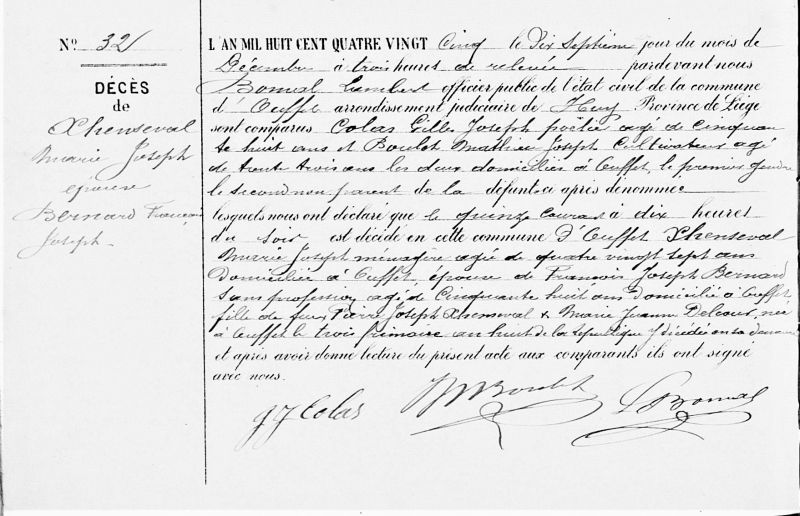 N.º 32
DÉCÈS
de
Xhenseval
Marie Joseph
épouse
Bernard François
Joseph.
L'AN MIL HUIT CENT QUATRE VINGT Cinq le Dix Septième jour du mois de
Décembre à trois heures de relevée pardevant nous
Bonval Lambert officier public de l'état civil de la commune
d' Ouffet arrondissement judiciaire de Huy Province de Liége
sont comparus Colas Gilles Joseph agé de cinquan
te huit ans et Boulet Mathieu Joseph Cultivateur agé
de trente trois ans les deux domiciliés à Ouffet, le premier gendre
le second non parent de la défunte ci après dénommée
lesquels nous ont déclaré que le quinze courant à dix heures
du soir est décédé en cette commune d'Ouffet Xhenseval
Marie Joseph ménagère agée de quatre vingt sept ans
domiciliée à Ouffet, épouse de François Joseph Bernard
sans profession agé de Cinquante huit ans domicilié à Ouffet,
fille de feus Pierre Joseph Xhenseval & Marie Jeanne Delcour, née
à Ouffet le trois frimaire an huit de la république y décédée en sa demeure
et après avoir donné lecture du présent acte aux comparants ils ont signé
avec nous.
g J Colas
Boulet
L Bonval